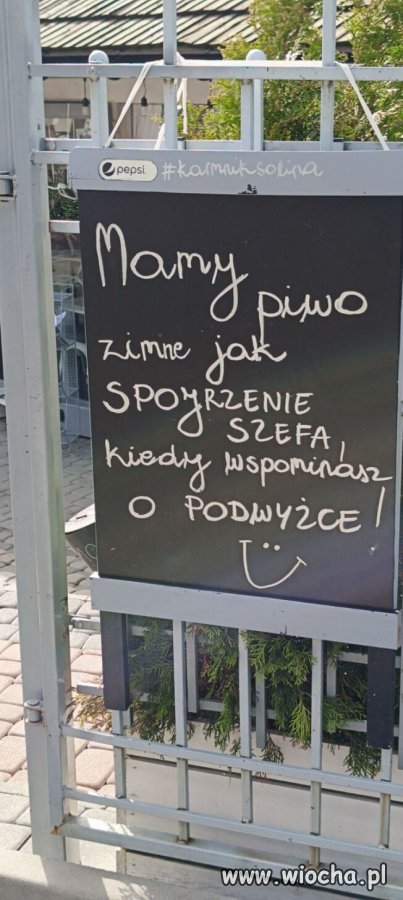 pepsi #karmniksolina
Mamy
piwo
zimne jak
SPOJRZENIE
SZEFA,
kiedy wspominasz
O PODWYŻCE!
www.wiocha.pl